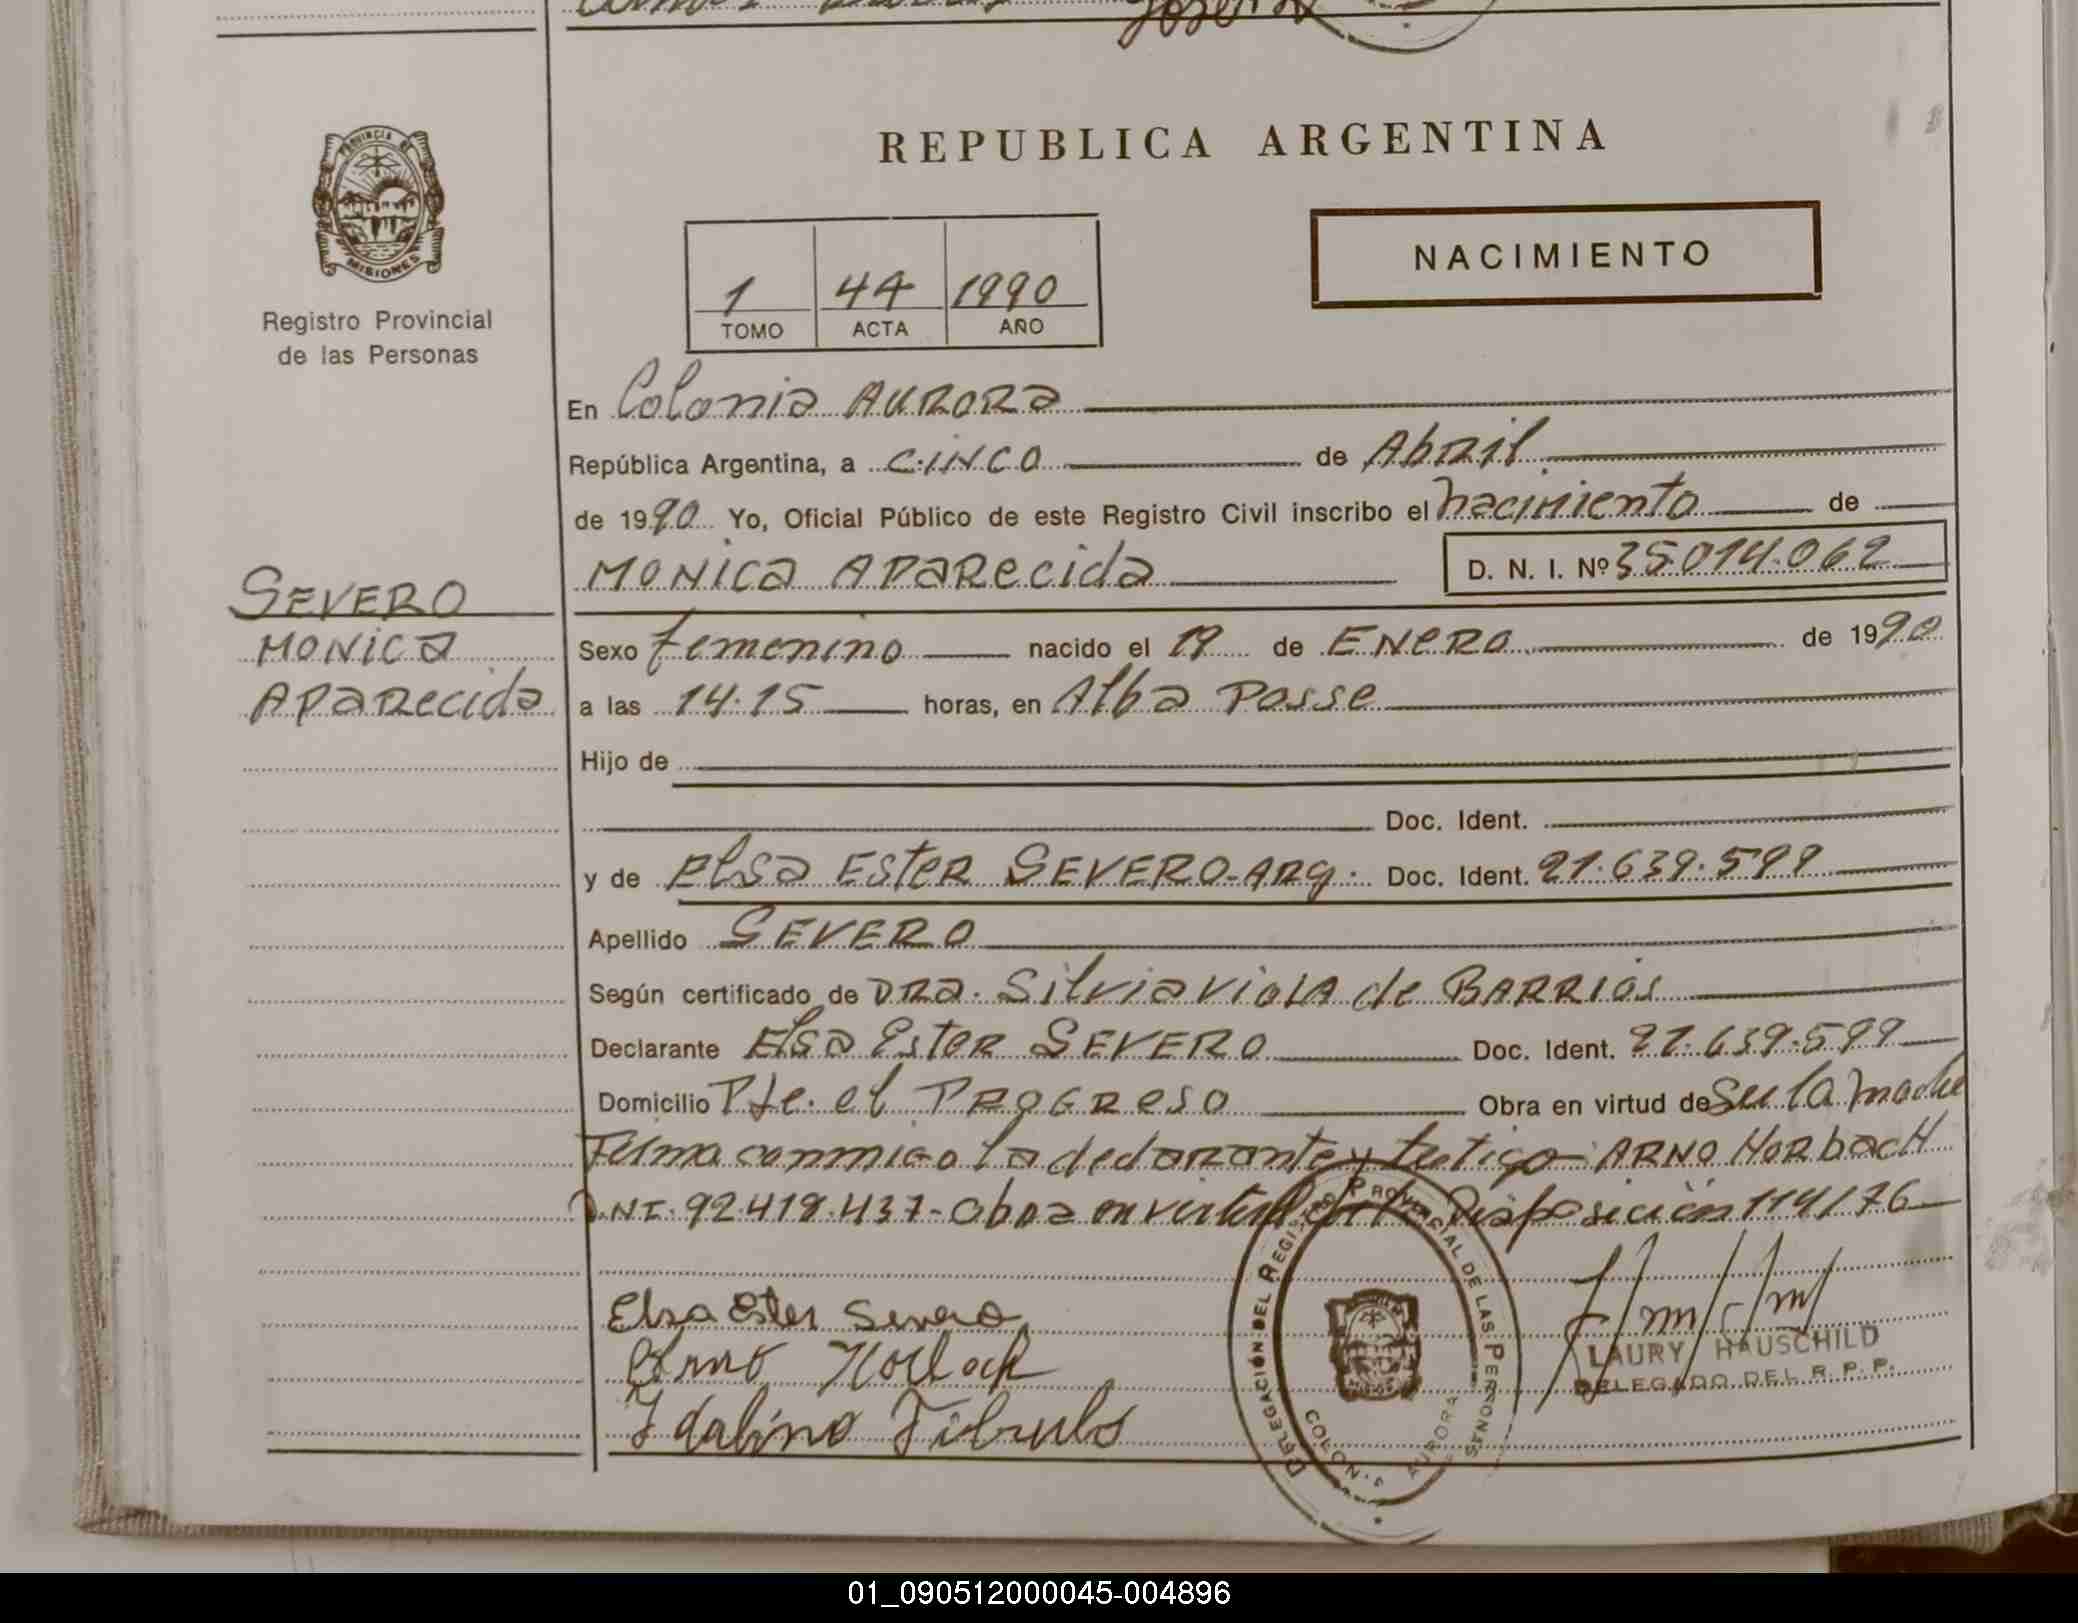 PROVINCIA DE
MISIONES
Registro Provincial
de las Personas
REPUBLICA ARGENTINA
NACIMIENTO
1 44 1990
TOMO ACTA AÑO
En Colonia AURORA
República Argentina, a CINCO de Abril
de 1990 Yo, Oficial Público de este Registro Civil inscribo el nacimiento de
MONICA APARECIDA D. N. I. Nº 35.014.062
SEVERO
MONICA
APARECIDA
Sexo femenino nacido el 19 de ENERO de 1990
a las 14.15 horas, en Alba Posse
Hijo de
Doc. Ident.
y de Elsa Ester SEVERO-ARg. Doc. Ident. 21.639.599
Apellido SEVERO
Según certificado de DRA. Silvia Viola de BARRIOS
Declarante Elsa Ester SEVERO Doc. Ident. 21.639.599
Domicilio Pje. el PROGRESO Obra en virtud de Ser la madre
Firma conmigo la declarante y testigo ARNO HORbacH
D.NI. 92.419.437- obra en virtud de la Disposición 114/76
Elsa Ester Severo
Arno Horbach
Idalino
DELEGACIÓN DEL REGISTRO PROVINCIAL DE LAS PERSONAS
COLONIA AURORA
LAURY HAUSCHILD
DELEGADO DEL R. P. P.
01_090512000045-004896